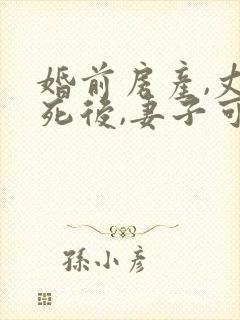 婚前房產,丈
死後,妻子可
孫小彥